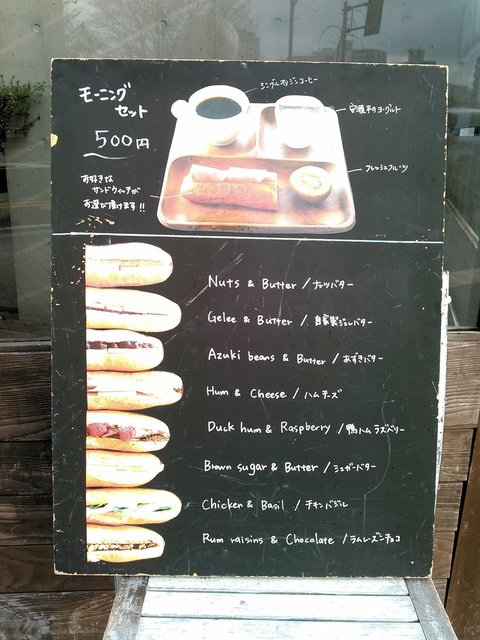 モーニング
セット
500円
お好きな
サンドウィッチが
お選び頂けます!!
シングルオリジンコーヒー
フレッシュフルーツ
Nuts & Butter / ナッツバター
Gelee & Butter / 自家製ジュレバター
Azuki beans & Butter / あずきバター
Hum & Cheese / ハムチーズ
Duck hum & Raspberry / 鴨ハムラズベリー
Brown sugar & Butter / シュガーバター
Chicken & Basil / チキンバジル
Rum raisins & Chocolate / ラムレーズンチョコ